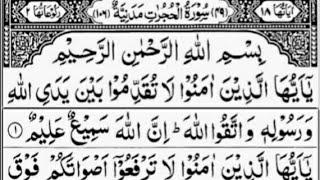 اٰیَاتُهَا ١٨ (٤٩) سُوْرَةُ الْحُجُرٰتِ مَدَنِيَّةٌ (١٠٦) رُكُوْعَاتُهَا
بِسْمِ اللّٰهِ الرَّحْمٰنِ الرَّحِيْمِ
يٰۤاَيُّهَا الَّذِيْنَ اٰمَنُوْا لَا تُقَدِّمُوْا بَيْنَ يَدَيِ اللّٰهِ
وَرَسُوْلِهٖ وَاتَّقُوا اللّٰهَ ؕ اِنَّ اللّٰهَ سَمِيْعٌ عَلِيْمٌ ١
يٰۤاَيُّهَا الَّذِيْنَ اٰمَنُوْا لَا تَرْفَعُوْۤا اَصْوَاتَكُمْ فَوْقَ